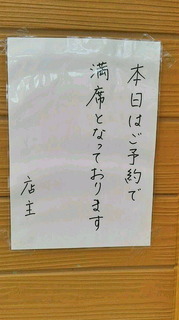 本日はご予約で
満席となっております
店主